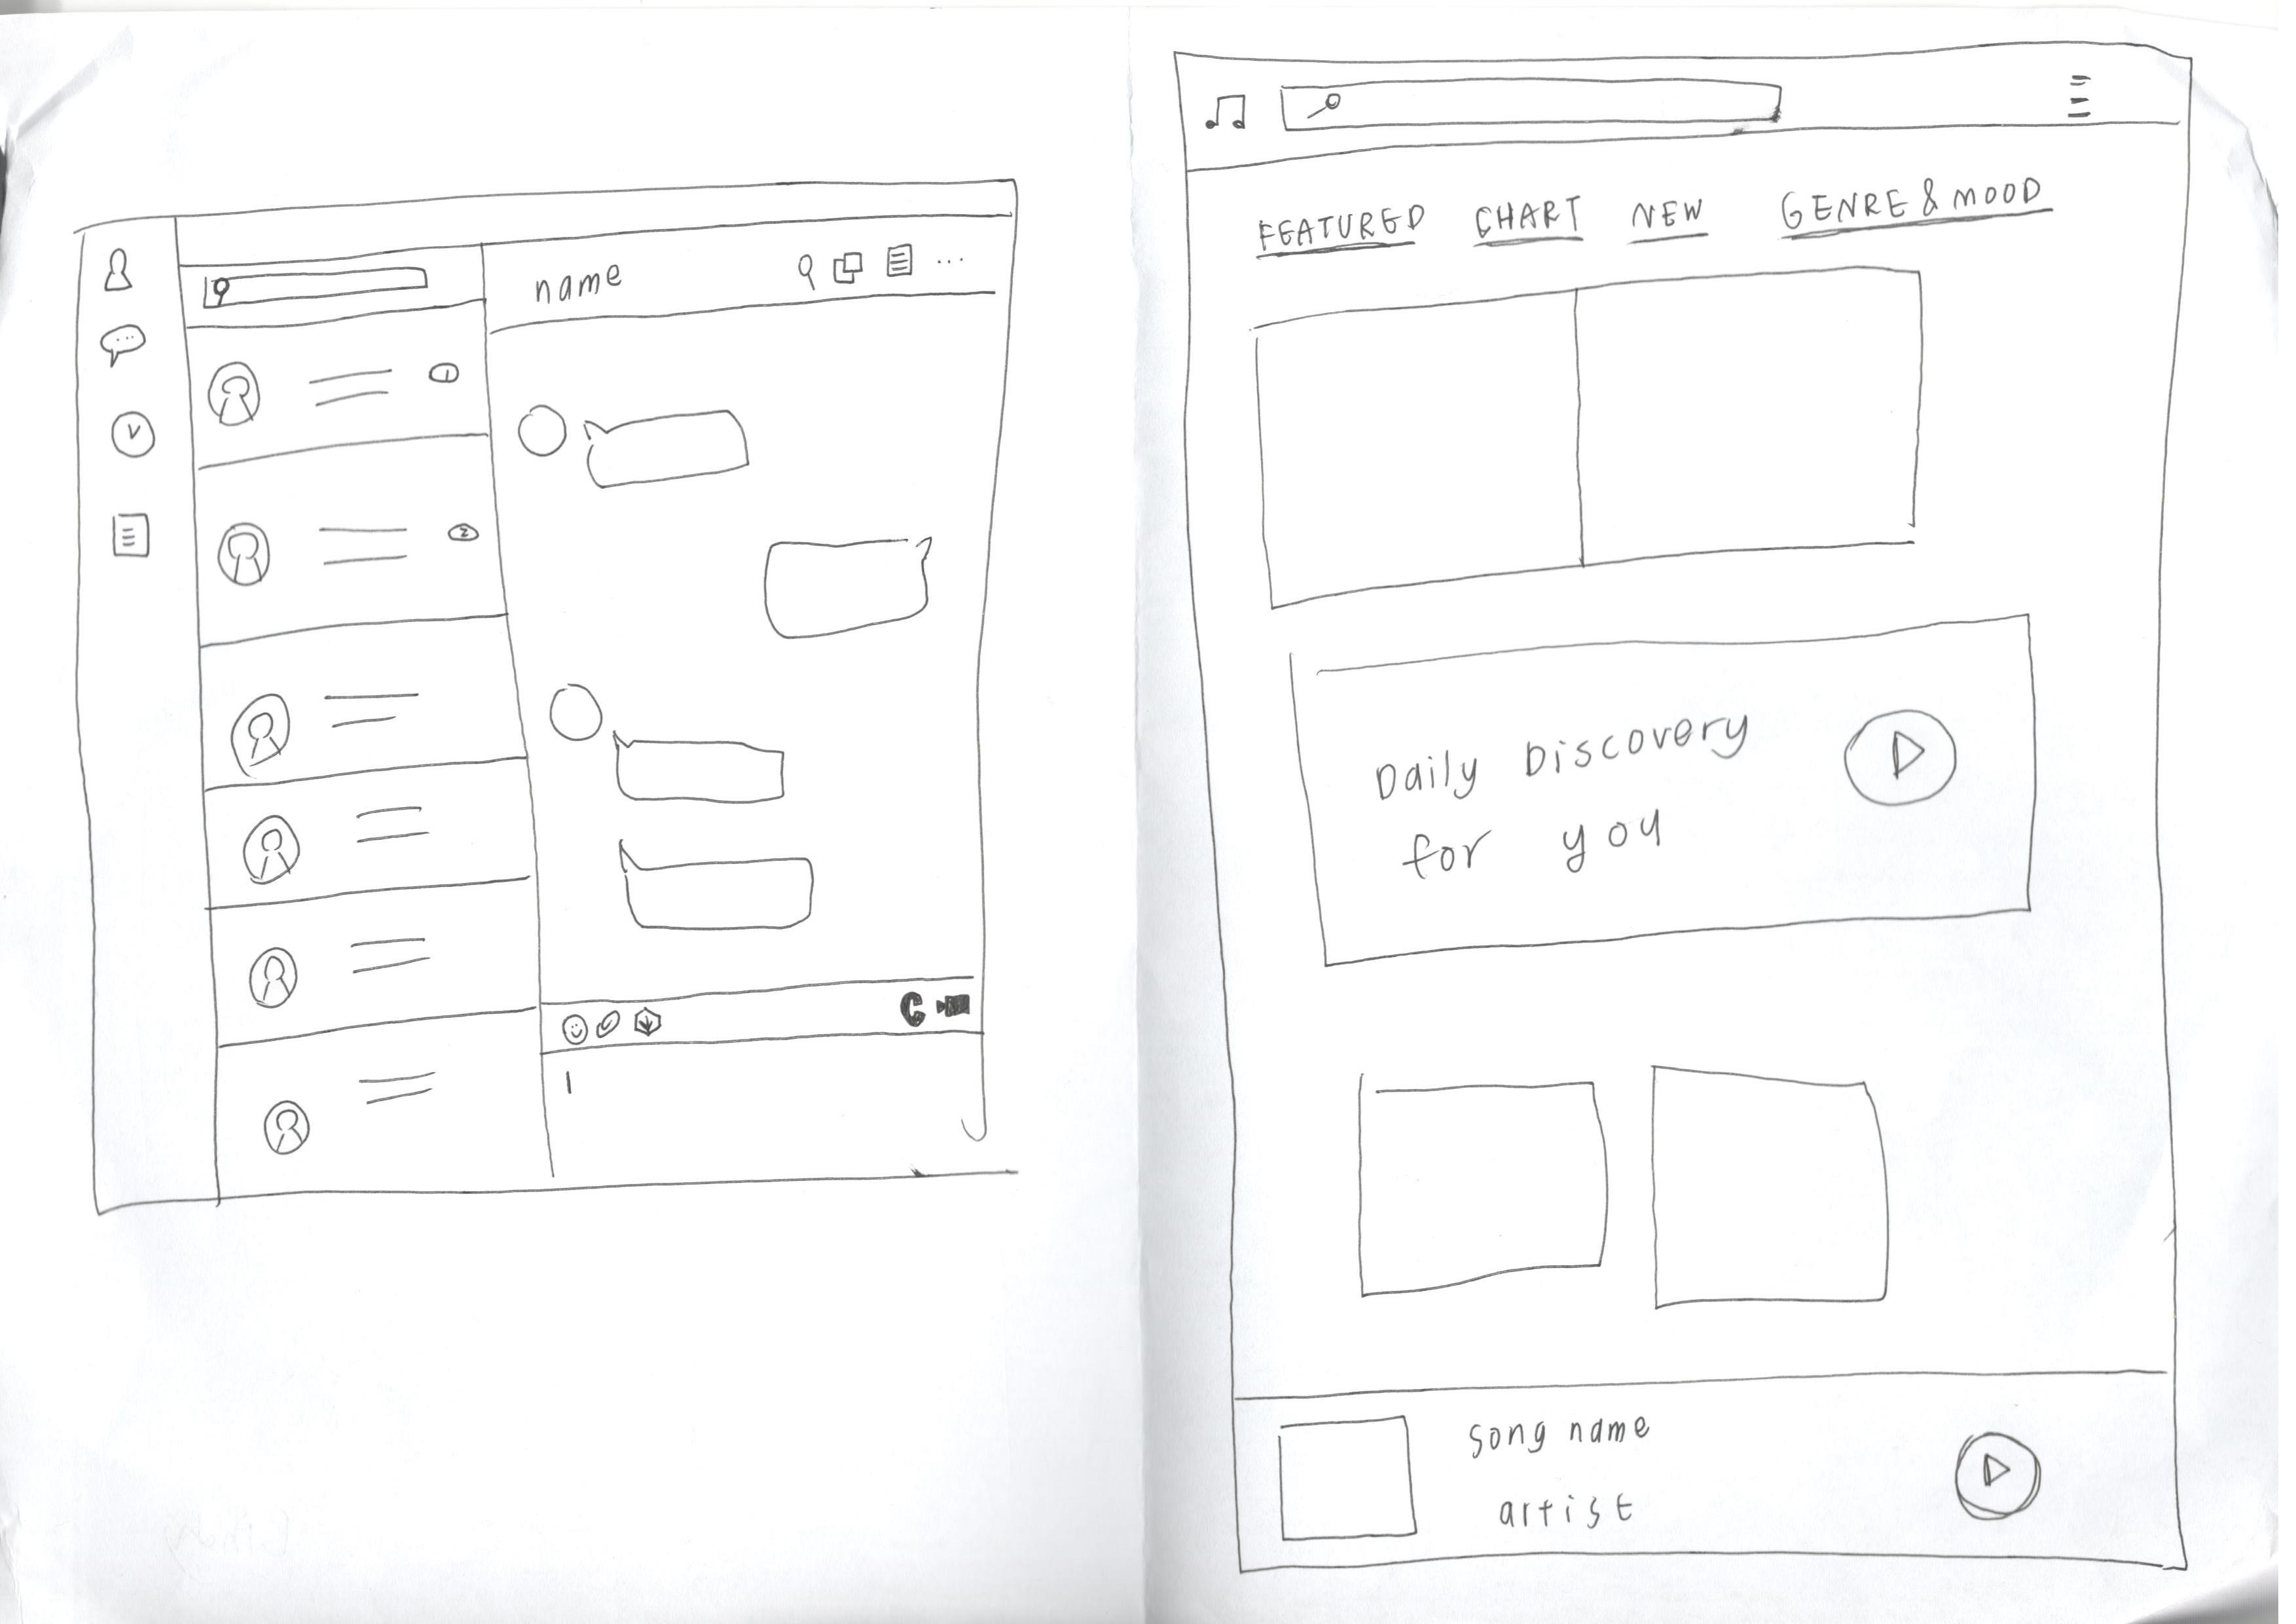 name
1
2
FEATURED CHART NEW GENRE & MOOD
Daily Discovery
for you
song name
artist